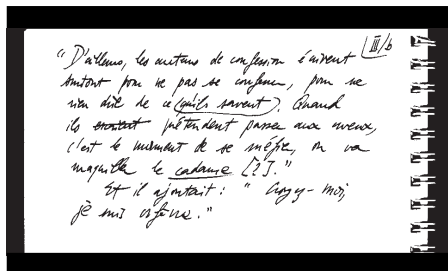 III/b
"D'ailleurs, les auteurs de confession écrivent
surtout pour ne pas se confesser, pour ne
rien dire de ce qu'ils savent. Quand
ils prétendent passer aux aveux,
c'est le moment de se méfier, on va
maquiller le cadavre [?]."
Et il ajoutait : " Croyez-moi,
je suis orfèvre."